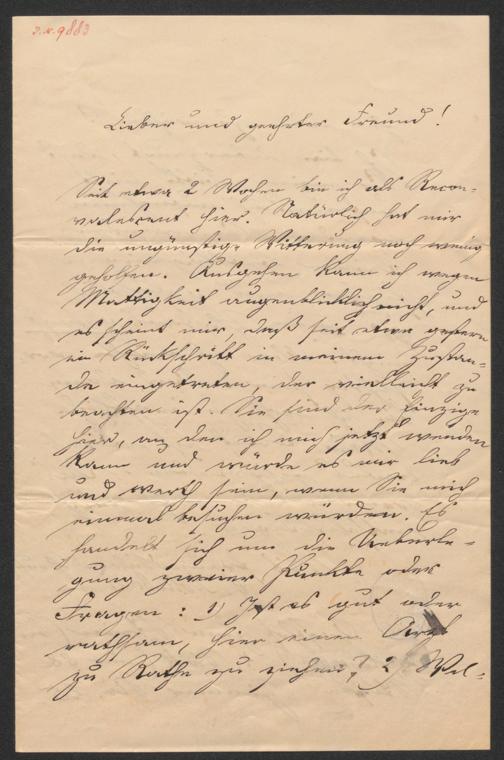 J.N. 9883
Lieber und geehrter Freund!
Seit etwa 2 Wochen bin ich als Recon-
valescent hier. Natürlich hat mir
die ungünstige Witterung noch wenig
geholfen. Ausgehen kann ich wegen
Mattigkeit augenblicklich nicht, und
es scheint mir, daß seit etwa gestern
ein Rückschritt in meinem Zustan-
de eingetreten, der vielleicht zu
beachten ist. Sie sind der Einzige
hier, an den ich mich jetzt wenden
kann und würde es mir lieb
und werth sein, wenn Sie mich
einmal besuchen würden. Es
handelt sich um die Ueberle-
gung zweier Punkte oder
Fragen: 1) Ist es gut oder
rathsam, hier einen Arzt
zu Rathe zu ziehen? 2) Wel-